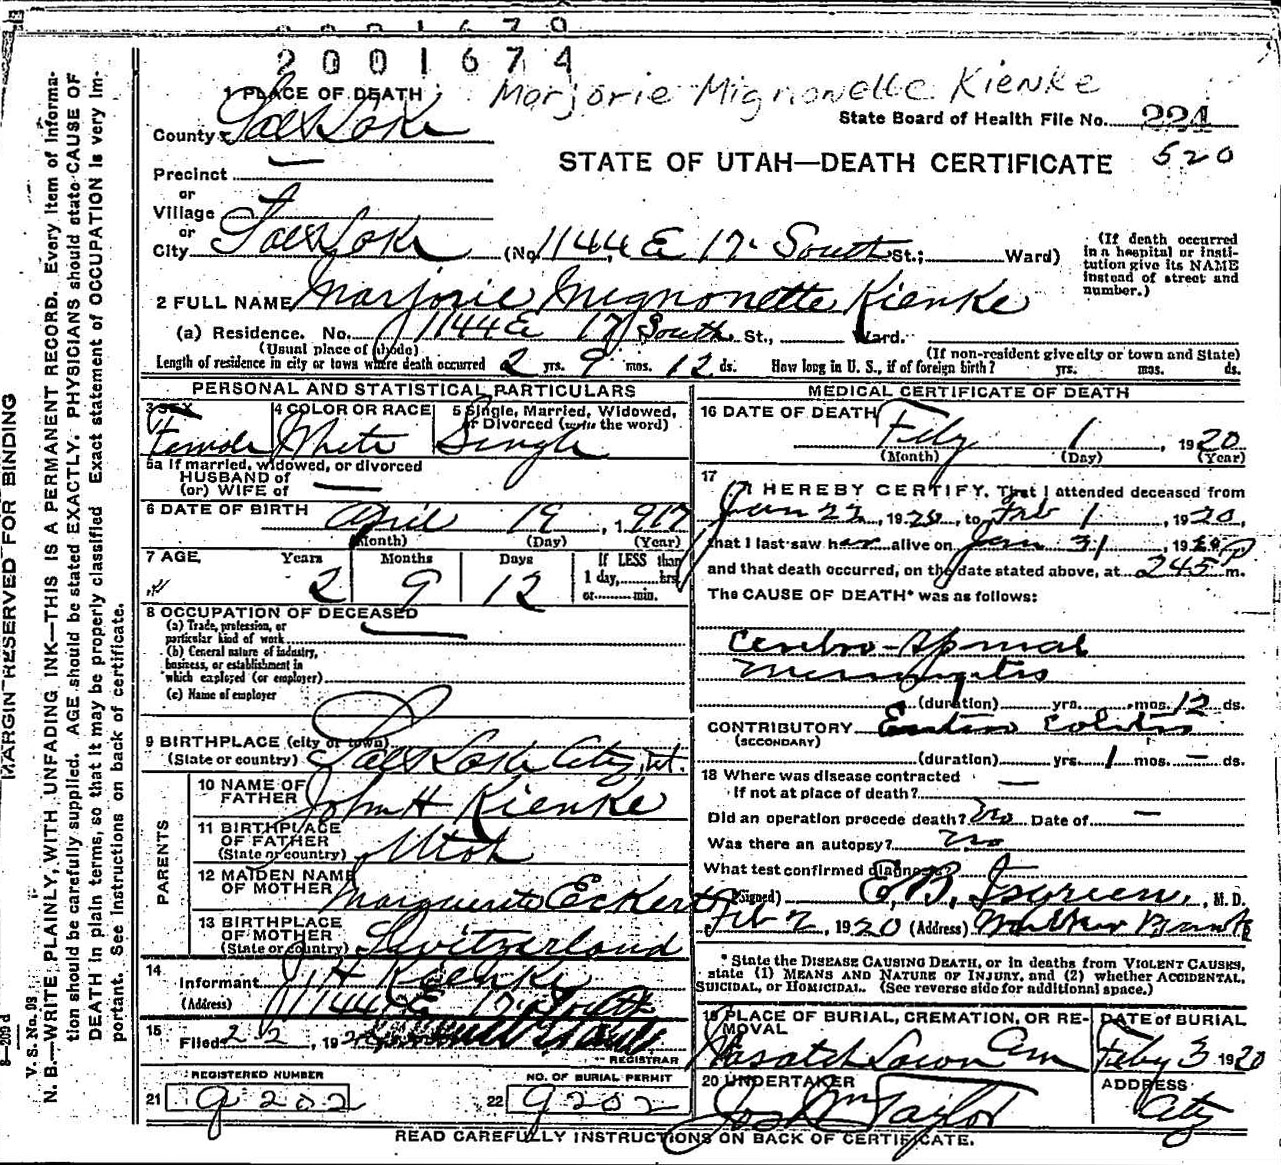 2001674
Marjorie Mignonette Kienke
1 PLACE OF DEATH
State Board of Health File No. 224
County Salt Lake
520
STATE OF UTAH—DEATH CERTIFICATE
Precinct
or
Village
or
City Salt Lake (No. 1144 E 17 South St.; Ward)
(If death occurred in a hospital or institution give its NAME instead of street and number.)
2 FULL NAME Marjorie Mignonette Kienke
(a) Residence. No. 1144 E 17 South St., Ward.
(Usual place of abode) (If non-resident give city or town and State)
Length of residence in city or town where death occurred 2 yrs. 9 mos. 12 ds. How long in U. S., if of foreign birth? yrs. mos. ds.
PERSONAL AND STATISTICAL PARTICULARS
3 SEX Female
4 COLOR OR RACE White
5 Single, Married, Widowed, or Divorced (write the word) Single
5a If married, widowed, or divorced
HUSBAND of
(or) WIFE of
6 DATE OF BIRTH April 19, 1917
(Month) (Day) (Year)
7 AGE Years 2 Months 9 Days 12 If LESS than 1 day, hrs. or min.
8 OCCUPATION OF DECEASED
(a) Trade, profession, or particular kind of work
(b) General nature of industry, business, or establishment in which employed (or employer)
(c) Name of employer
9 BIRTHPLACE (city or town)
(State or country) Salt Lake City, Ut.
PARENTS
10 NAME OF FATHER John H Kienke
11 BIRTHPLACE OF FATHER (State or country) Utah
12 MAIDEN NAME OF MOTHER Marguerite Eckert
13 BIRTHPLACE OF MOTHER (State or country) Switzerland
14 Informant J H Kienke
(Address) 1144 E 17 South
15 Filed 2 2, 192
REGISTRAR
REGISTERED NUMBER
21 9202
NO. OF BURIAL PERMIT
22 9202
MEDICAL CERTIFICATE OF DEATH
16 DATE OF DEATH Feby 1, 1920
(Month) (Day) (Year)
17 I HEREBY CERTIFY, That I attended deceased from
Jan 22, 1920, to Feb 1, 1920,
that I last saw her alive on Jan 31, 1920
and that death occurred, on the date stated above, at 245 P m.
The CAUSE OF DEATH* was as follows:
Cerebro-Spinal
Meningitis
(duration) yrs. mos. 12 ds.
CONTRIBUTORY Entero Colitis
(SECONDARY)
(duration) yrs. 1 mos. — ds.
18 Where was disease contracted
If not at place of death? —
Did an operation precede death? No Date of —
Was there an autopsy? no
What test confirmed diagnosis?
(Signed) E. B. Isgreen, M. D.
Feb 2, 1920 (Address) Walker Bank
* State the DISEASE CAUSING DEATH, or in deaths from VIOLENT CAUSES, state (1) MEANS AND NATURE OF INJURY, and (2) whether ACCIDENTAL, SUICIDAL, or HOMICIDAL. (See reverse side for additional space.)
19 PLACE OF BURIAL, CREMATION, OR REMOVAL Wasatch Lawn Cem
DATE of BURIAL Feby 3 1920
20 UNDERTAKER Jos Wm Taylor
ADDRESS City
READ CAREFULLY INSTRUCTIONS ON BACK OF CERTIFICATE.
MARGIN RESERVED FOR BINDING
V. S. No. 98
N. B.—WRITE PLAINLY, WITH UNFADING INK—THIS IS A PERMANENT RECORD. Every item of information should be carefully supplied. AGE should be stated EXACTLY. PHYSICIANS should state CAUSE OF DEATH in plain terms, so that it may be properly classified. Exact statement of OCCUPATION is very important. See instructions on back of certificate.